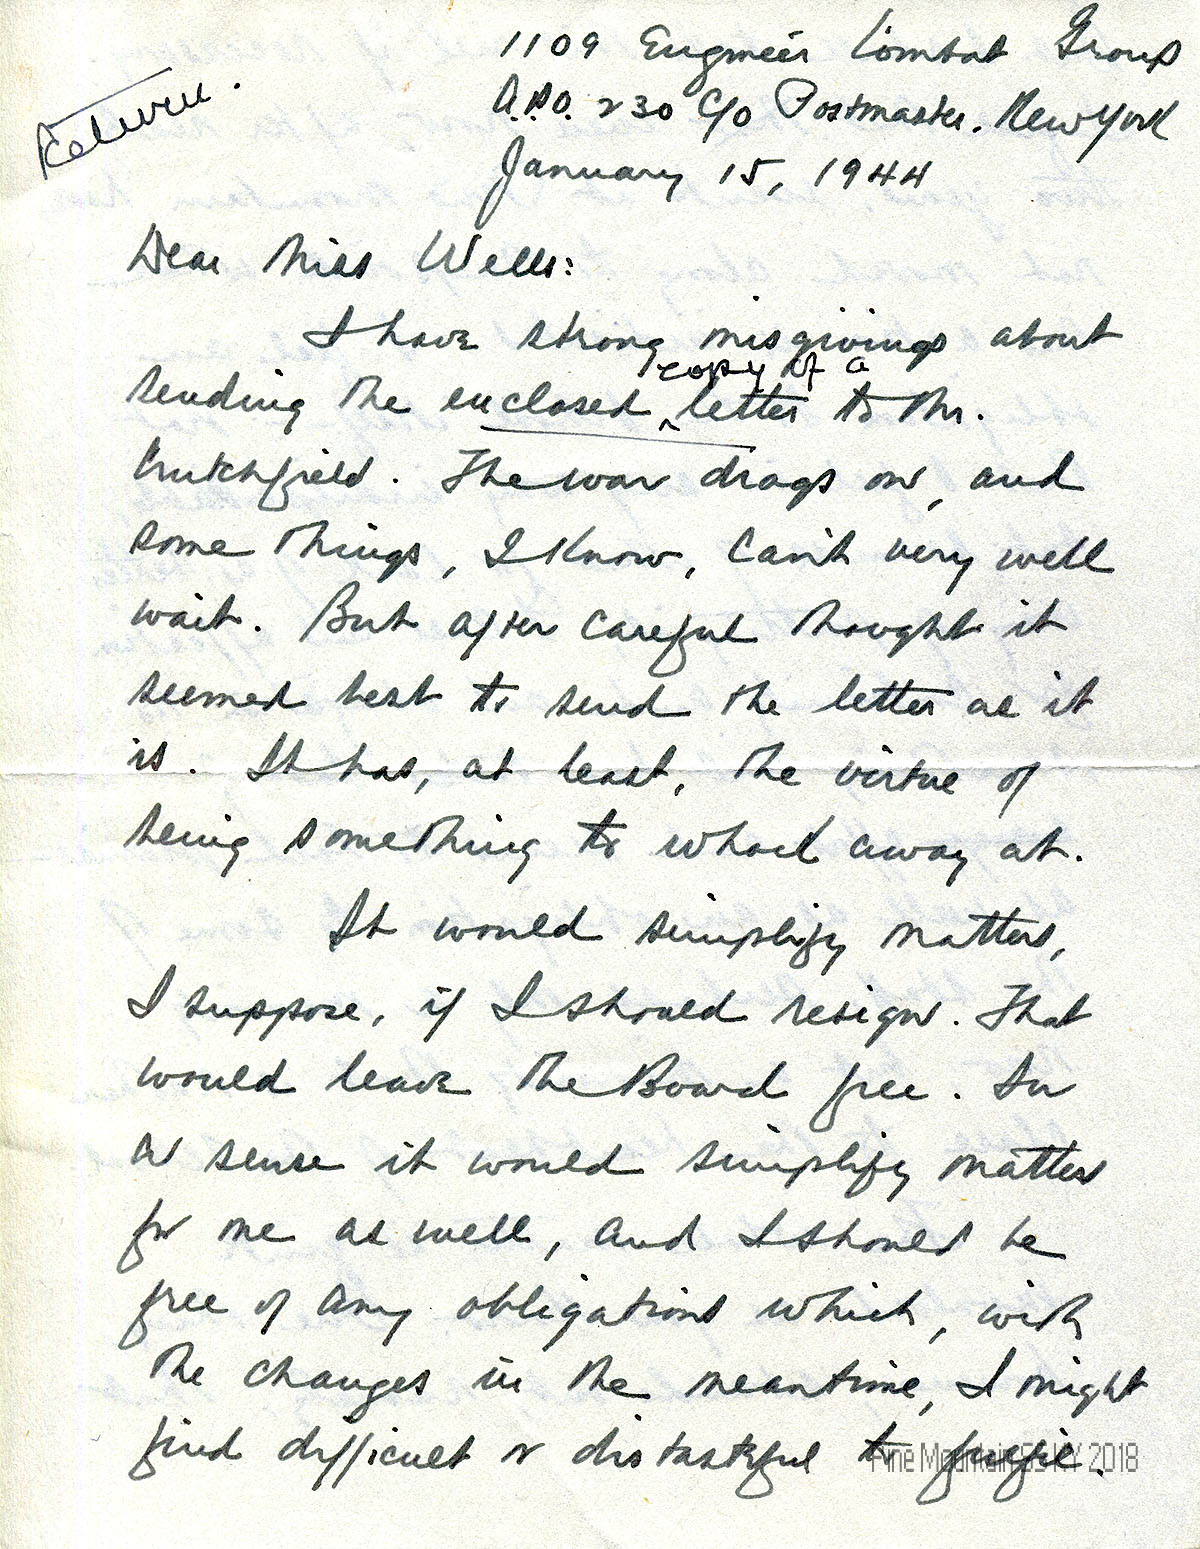 1109 Engineer Combat Group
A.P.O. 230 c/o Postmaster. New York
January 15, 1944
Return.
Dear Miss Wells:
I have strong misgivings about
copy of a
sending the enclosed ^ letter to Mr.
Crutchfield. The war drags on, and
some things, I know, can't very well
wait. But after careful thought it
seemed best to send the letter as it
is. It has, at least, the virtue of
being something to whack away at.
It would simplify matters,
I suppose, if I should resign. That
would leave the Board free. In
a sense it would simplify matters
for me as well, and I should be
free of any obligations which, with
the changes in the meantime, I might
find difficult or distasteful to fulfil.
Pine Mountain SS KY 2018